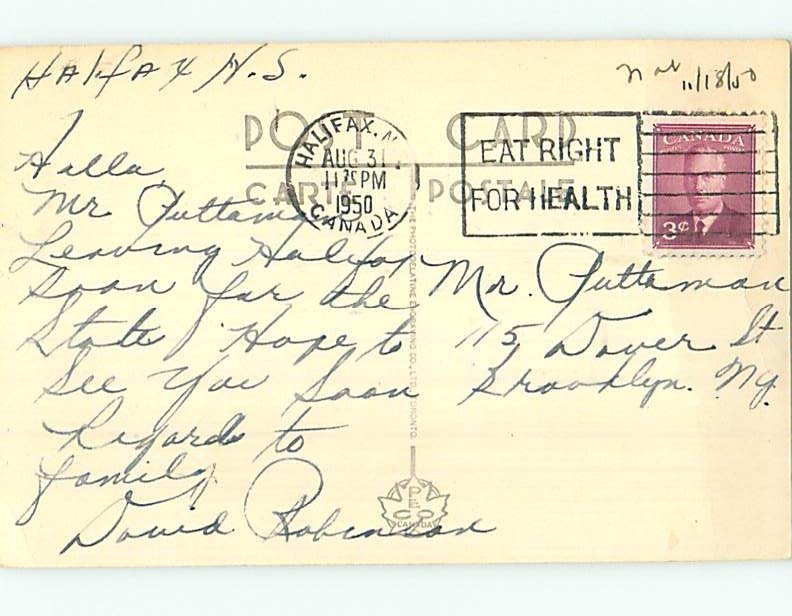 Halifax N.S.
11/18/50
POST CARD
CARTE POSTALE
HALIFAX, N.
AUG 31
11 PM
1950
CANADA
EAT RIGHT
FOR HEALTH
CANADA
3¢
Hallo
Mr Puttaman
Leaving Halifax
soon for the
State Hope to
See You Soon
Regards to
family
David Robinson
Mr. Puttaman
115 Dover St
Brooklyn. Ny.
THE PHOTOGELATINE ENGRAVING CO., LTD. TORONTO.
PECO
CANADA